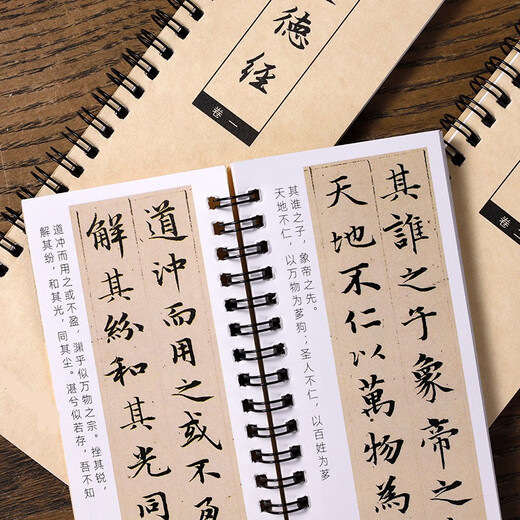 德經
卷一
道冲而用之或不盈，渊乎似万物之宗。挫其锐，
解其纷，和其光，同其尘。湛兮似若存，吾不知
道冲而用之或不
解其紛和其光同
其谁之子，象帝之先。
天地不仁，以万物为芻狗；圣人不仁，以百姓为芻
其誰之子象帝之
天地不仁以萬物為